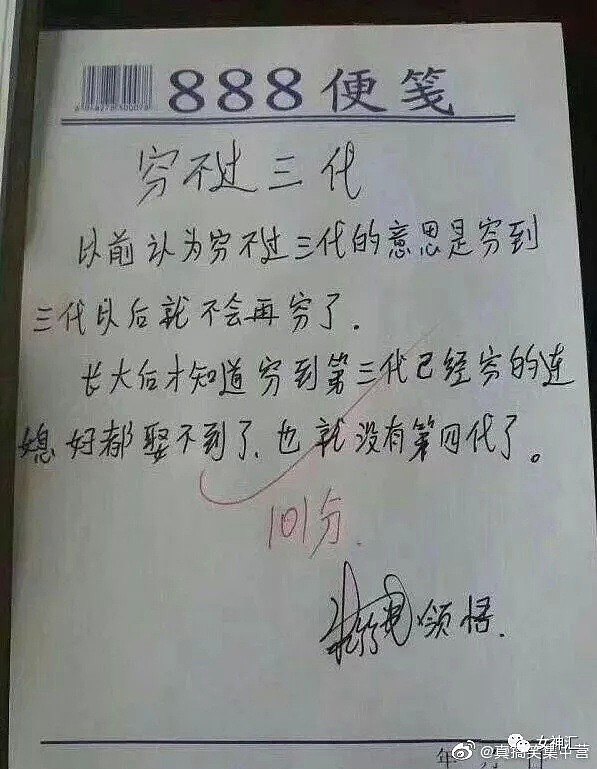 888便笺
穷不过三代
以前认为穷不过三代的意思是穷到
三代以后就不会再穷了.
长大后才知道穷到第三代已经穷的连
媳妇都娶不到了、也就没有第四代了。
101分.
领悟.
女神汇
@真搞笑集中营
年 月 日